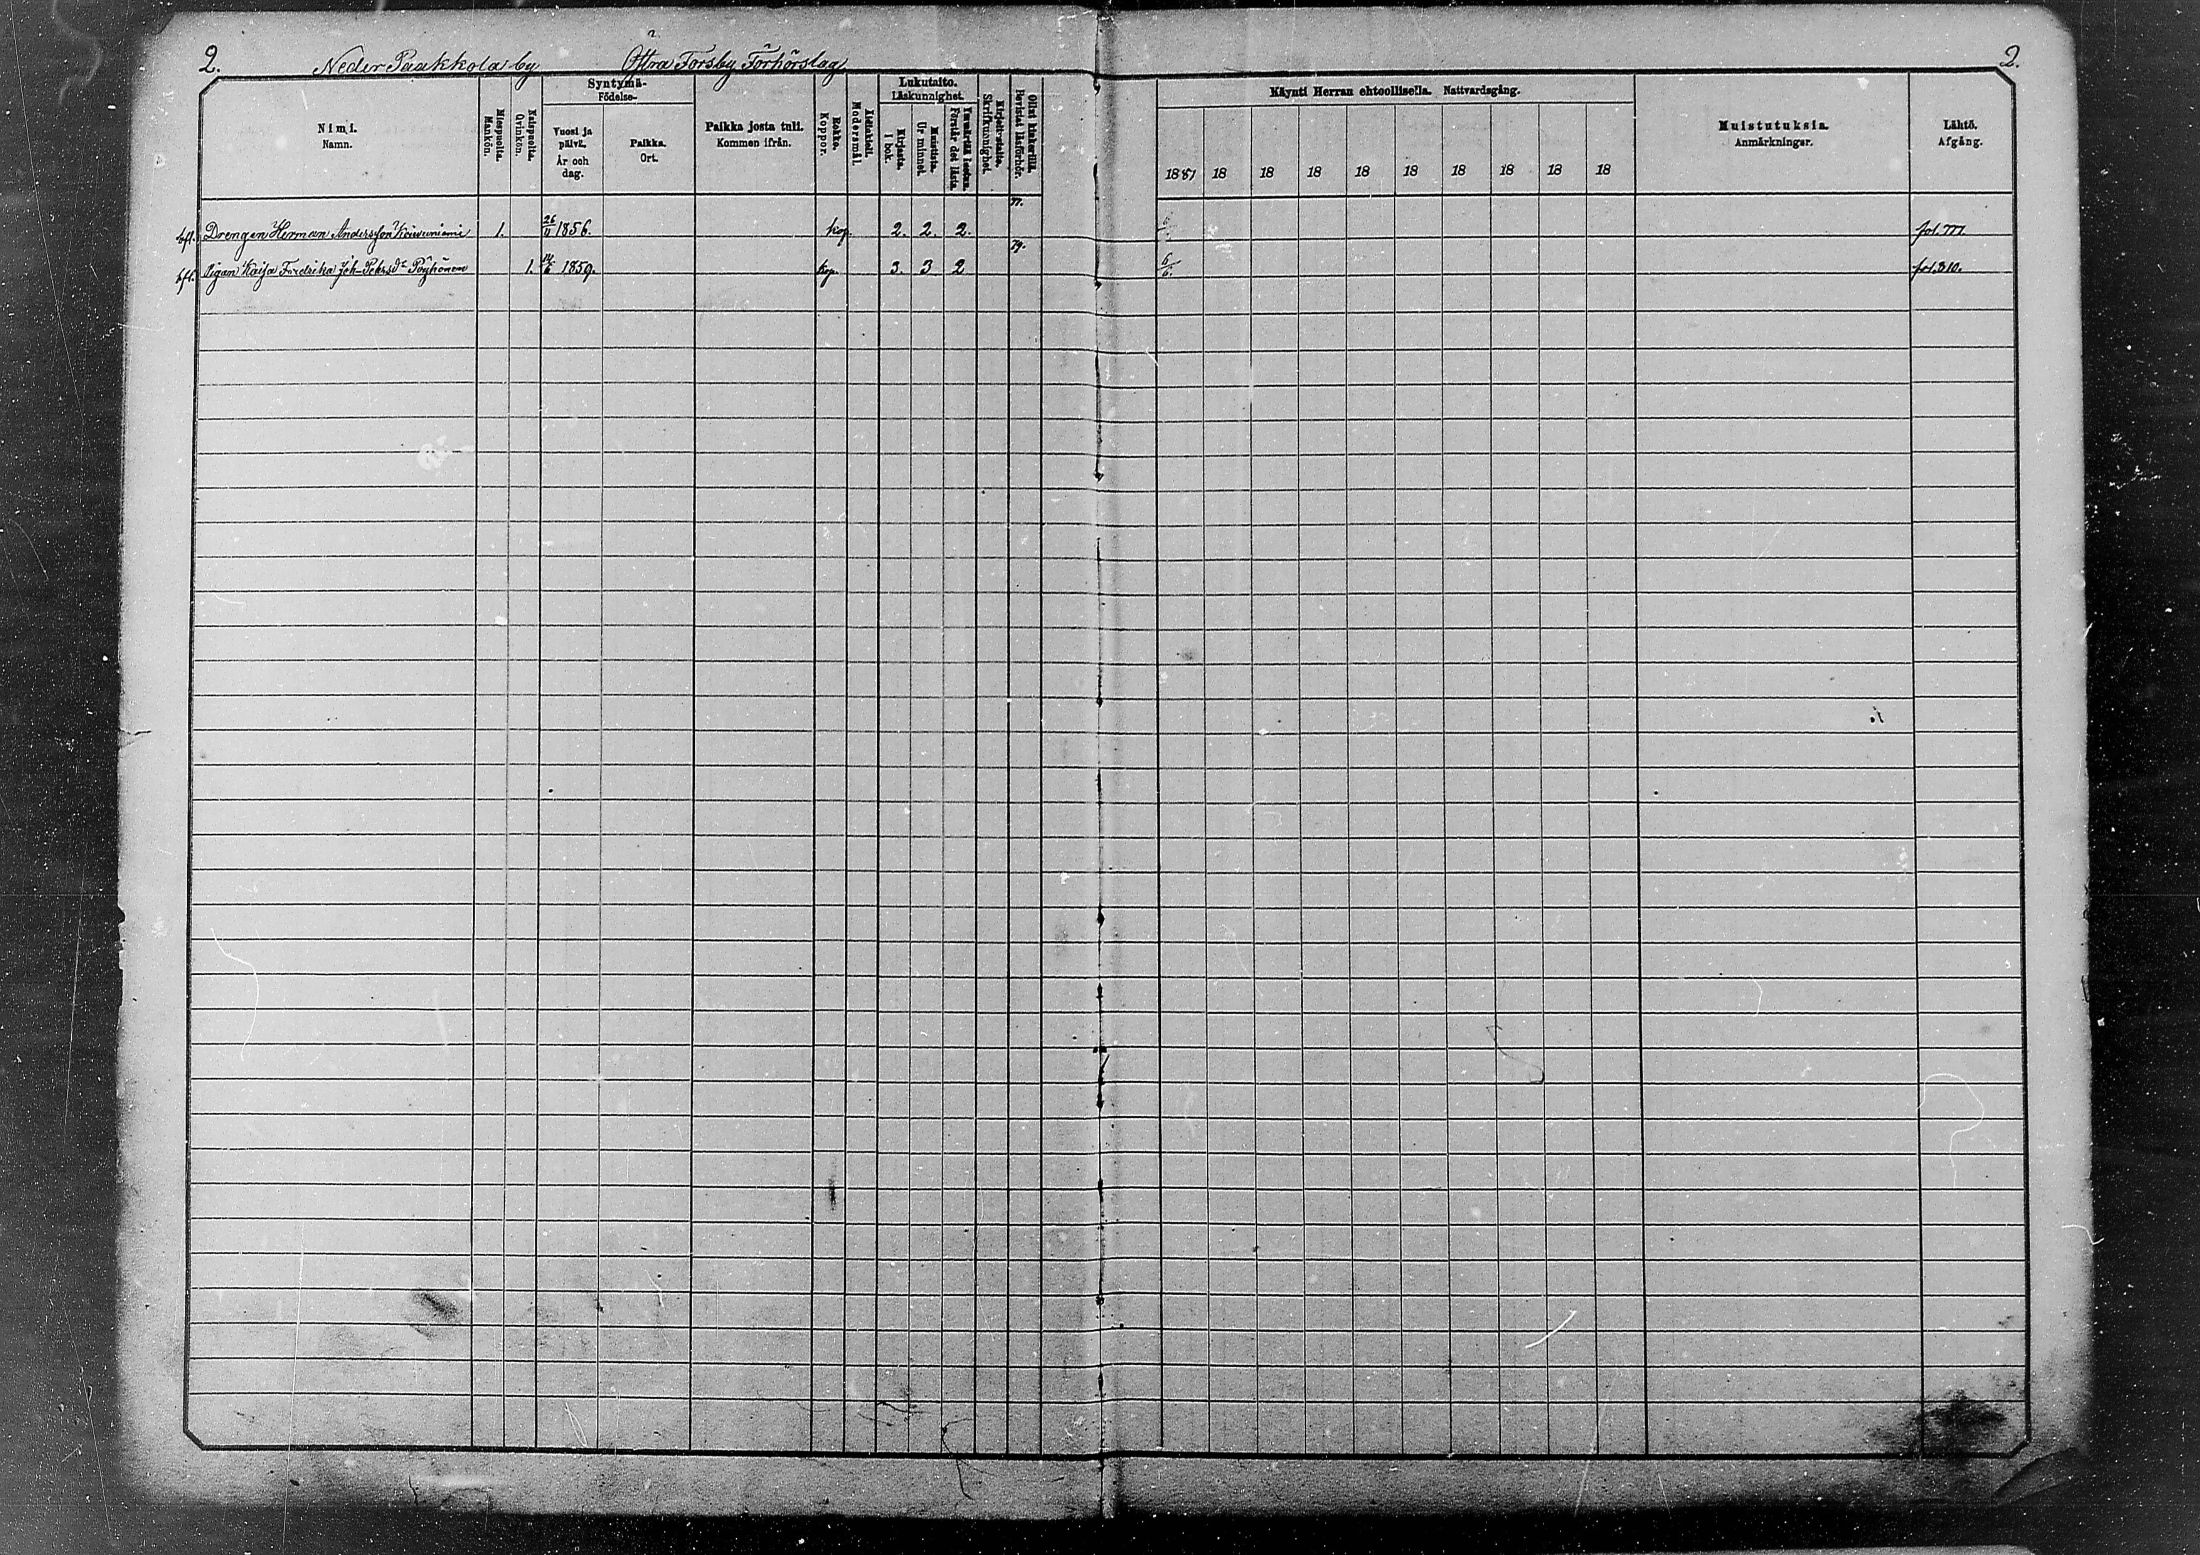 2. Neder Paakkola by Östra Forsby Förhörslag 2.
Nimi. Namn.
Miespuolta. Mankön.
Naispuolta. Qvinkön.
Syntymä- Födelse-
Vuosi ja päivä. År och dag.
Paikka. Ort.
Paikka josta tuli. Kommen ifrån.
Rokko. Koppor.
Äidinkieli. Modersmål.
Lukutaito. Läskunnighet.
Kirjasta. I bok.
Muistista. Ur minnet.
Ymmärtää luetun. Förstår det lästa.
Kirjoitustaito. Skrifkunnighet.
Ollut kinkerillä. Bevistat läsförhör.
Käynti Herran ehtoollisella. Nattvardsgång.
1881 18 18 18 18 18 18 18 18 18
Muistutuksia. Anmärkningar.
Lähtö. Afgång.
77.
Drengen Herman Andersson 1. 26/11 1856. kop. 2. 2. 2. fol. 777.
79.
Pigan Kaisa Fredrika Joh-Pehrsdr Pöyhönen 1. 1859. kop. 3. 3 2 6/6. fol. 810.